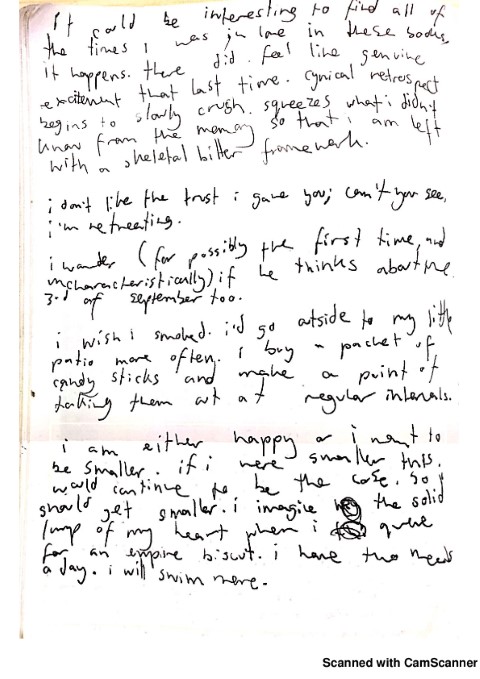 it could be interesting to find all of
the times i was in love in these books
it happens. there did feel like genuine
excitement that last time. cynical retrospect
begins to slowly crush. squeezes what i didn't
know from the memory so that i am left
with a skeletal bitter framework.
i don't like the trust i gave you; can't you see,
i'm retreating.
i wonder (for possibly the first time, and
uncharacteristically) if he thinks about the
3rd of september too.
i wish i smoked. i'd go outside to my little
patio more often. i buy a packet of
candy sticks and make a point of
taking them out at regular intervals.
i am either happy or i want to
be smaller. if i were smaller this
would continue to be the case. so i
should get smaller. i imagine the solid
lump of my heart when i queue
for an empire biscuit. i have two needs
a day. i will swim more.
Scanned with CamScanner